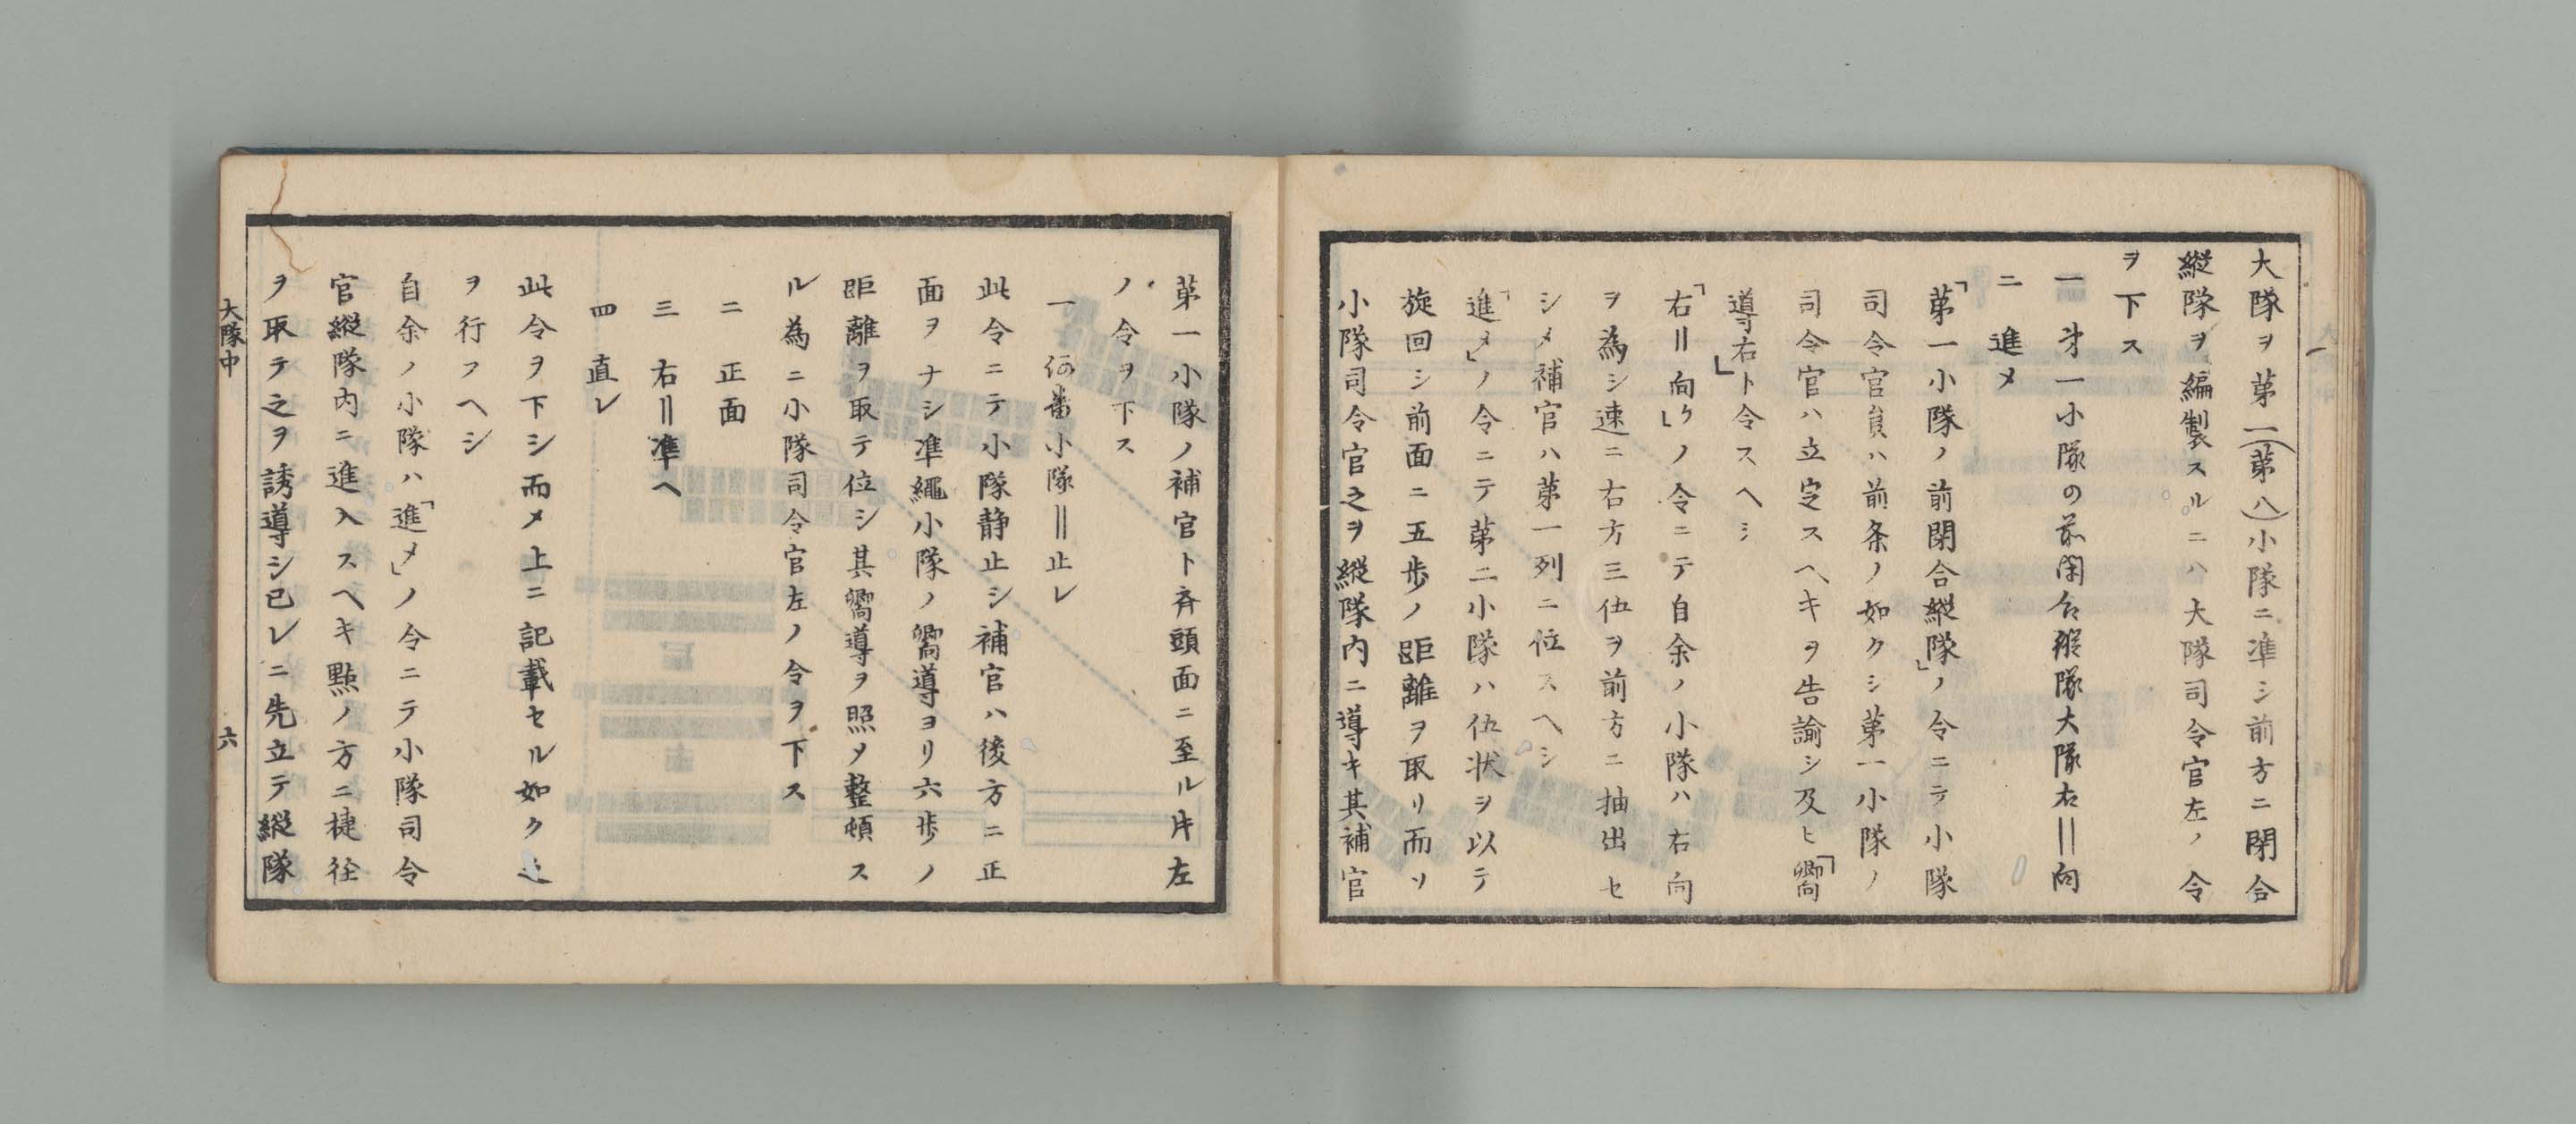 大隊ヲ第一(第八)小隊ニ準シ前方ニ閉合
縦隊ヲ編製スルニハ大隊司令官左ノ令
ヲ下ス
一 第一小隊の前閉合縦隊大隊右‖向
二 進メ
「第一小隊ノ前閉合縦隊」ノ令ニテ小隊
司令官員ハ前条ノ如クシ第一小隊ノ
司令官ハ立定スヘキヲ告諭シ及ヒ「嚮
導右」ト令スヘシ
「右‖向ケ」ノ令ニテ自余ノ小隊ハ右向
ヲ為シ速ニ右方三伍ヲ前方ニ抽出セ
シメ補官ハ第一列ニ位スヘシ
「進メ」ノ令ニテ第二小隊ハ伍状ヲ以テ
旋回シ前面ニ五歩ノ距離ヲ取リ而ソ
小隊司令官之ヲ縦隊内ニ導キ其補官
第一小隊ノ補官ト斉頭面ニ至ル片左
ノ令ヲ下ス
一 何番小隊‖止レ
此令ニテ小隊静止シ補官ハ後方ニ正
面ヲナシ準縄小隊ノ嚮導ヨリ六歩ノ
距離ヲ取テ位シ其嚮導ヲ照メ整頓ス
ル為ニ小隊司令官左ノ令ヲ下ス
二 正面
三 右‖準ヘ
四 直レ
此令ヲ下シ而メ上ニ記載セル如ク之
ヲ行フヘシ
自余ノ小隊ハ「進メ」ノ令ニテ小隊司令
官縦隊内ニ進入スヘキ點ノ方ニ捷径
ヲ取テ之ヲ誘導シ已レニ先立テ縦隊
大隊中 六